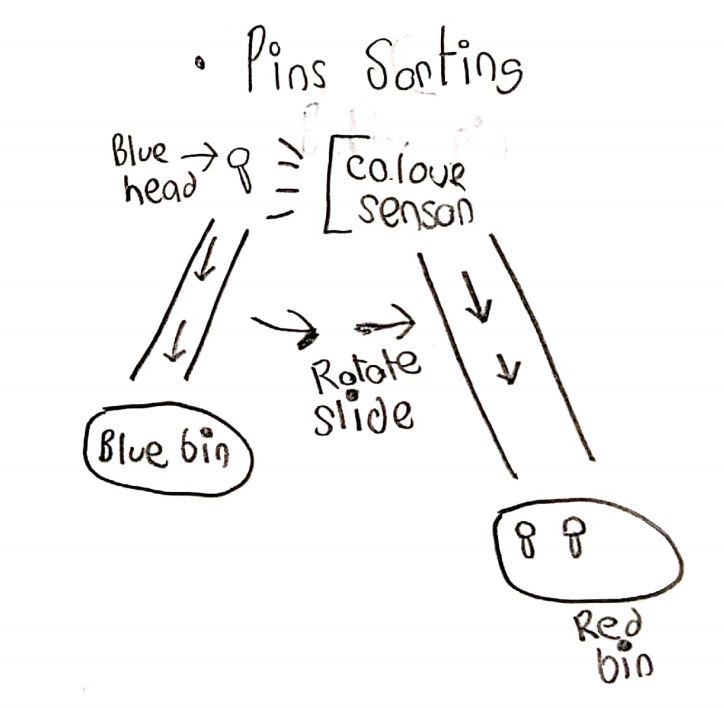 • Pins Sorting
Blue → head
colour sensor
Rotate slide
Blue bin
Red bin